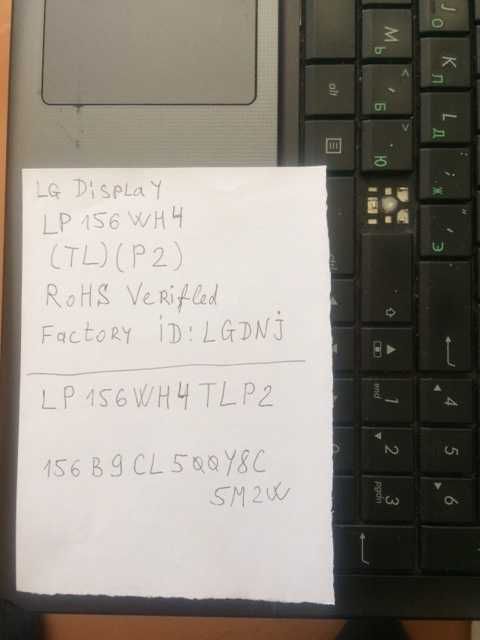 LG Display
LP156WH4
(TL)(P2)
RoHS Verified
Factory iD: LGDNJ
LP156WH4TLP2
156B9CL5QQY8C
5M2W
alt
M Ь
< , Б
> . Ю
J О
K Л
L Д
: ; Ж
" ' Э
end 1
2
pgdn 3
4
5
6